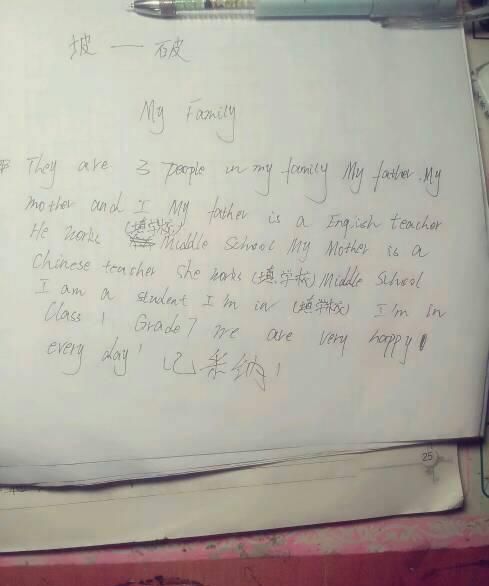 坡 — 破
My Family
They are 3 people in my family My father. My
mother and I My father is a Engish teacher
He works (填学校) Middle School My Mother is a
Chinese teacher She works (填学校) Middle School
I am a student I'm in (填学校) I'm in
Class 1 Grade 7 we are very happy
every day!
25